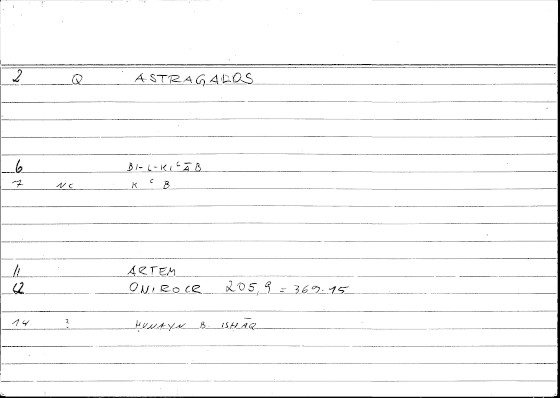 2 Q ASTRAGALOS
6 BI-L-KIʿĀB
7 NC KʿB
11 ARTEM
12 ONIROCR 205,9 = 369.15
14 ? ḤUNAYN B ISḤĀQ